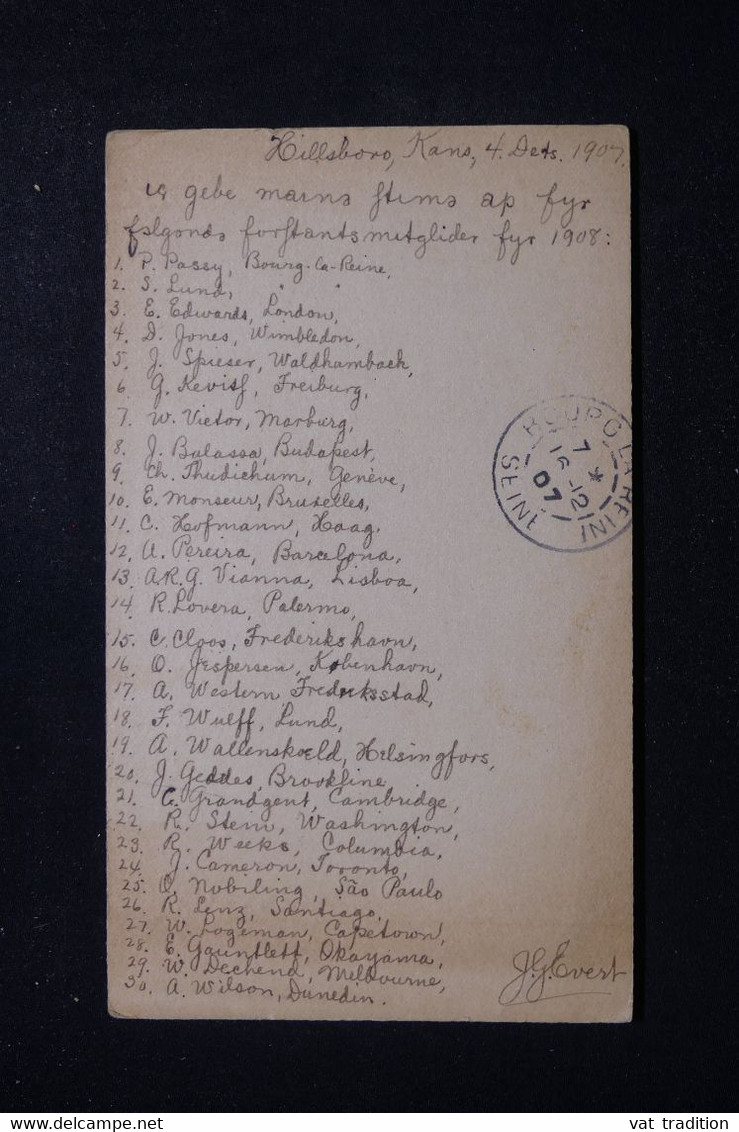 Hillsboro, Kans, 4. Dets. 1907.
iç gebe mainə ʃtimə ap fyr
fɔlgəndə forʃtantsmitglider fyr 1908:
1. P. Passy, Bourg-la-Reine,
2. S. Lund, " "
3. E. Edwards, London,
4. D. Jones, Wimbledon,
5. J. Spieser, Waldhambach,
6. G. Kevitʃ, Freiburg,
7. W. Vietor, Marburg,
8. J. Balassa, Budapest,
9. Ch. Thudichum, Genève,
10. E. Monseur, Bruxelles,
11. C. Hofmann, Haag.
12. A. Pereira, Barcelona,
13. A.R.G. Vianna, Lisboa,
14. R. Lovera, Palermo,
15. C. Cloos, Frederikshavn,
16. O. Jespersen, København,
17. A. Western Fredriksstad,
18. F. Wulff, Lund,
19. A. Wallenskoeld, Helsingfors,
20. J. Geddes, Brookline
21. C. Grandgent, Cambridge,
22. R. Stein, Washington,
23. R. Weeks, Columbia,
24. J. Cameron, Toronto,
25. O. Nobiling, São Paulo
26. R. Lenz, Santiago,
27. W. Logeman, Capetown,
28. E. Gauntlett, Okayama,
29. W. Dechend, Melbourne,
30. A. Wilson, Dunedin.
J.G. Evert
BOURG LA REINE
7 *
16-12
07
SEINE
vat tradition